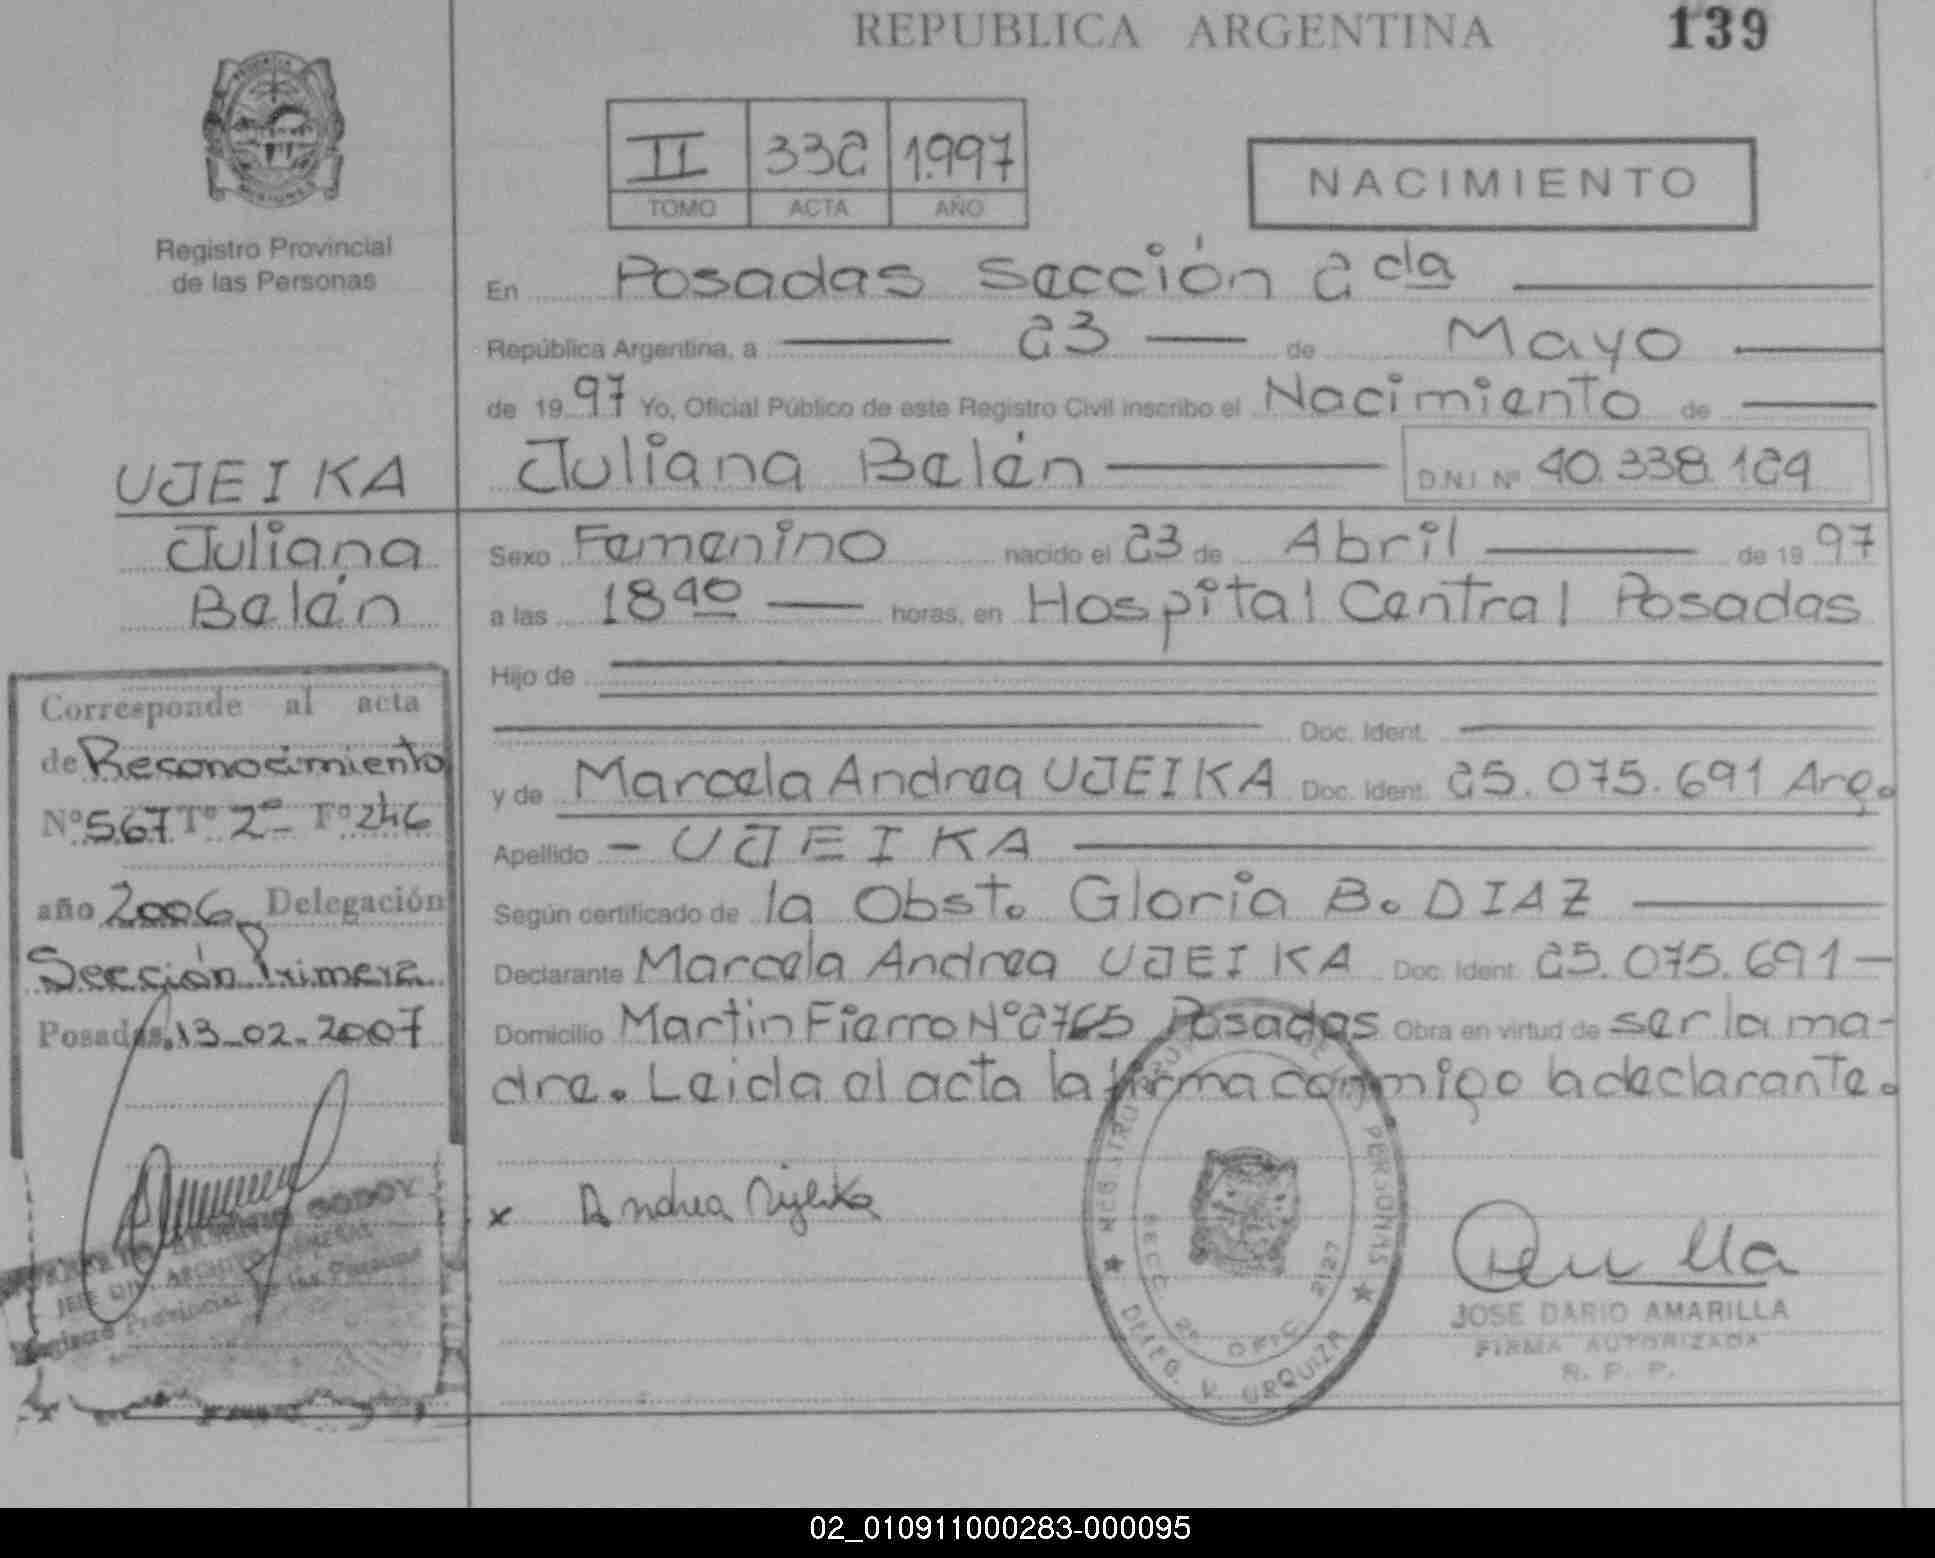 REPUBLICA ARGENTINA
139
Registro Provincial
de las Personas
II 332 1.997
TOMO ACTA AÑO
NACIMIENTO
En Posadas Sección 2da
República Argentina, a 23 de Mayo
de 1997 Yo, Oficial Público de este Registro Civil inscribo el Nacimiento de
Juliana Belén D.N.I. Nº 40.338.129
Sexo Femenino nacido el 23 de Abril de 1997
a las 18 40 horas, en Hospital Central Posadas
Hijo de
Doc. Ident.
y de Marcela Andrea UJEIKA Doc. Ident. 25.075.691 Arg.
Apellido - UJEIKA
Según certificado de la Obst. Gloria B. DIAZ
Declarante Marcela Andrea UJEIKA Doc. Ident. 25.075.691
Domicilio Martin Fierro Nº 2765 Posadas Obra en virtud de ser la ma-
dre. Leida el acta la firma conmigo la declarante.
UJEIKA
Juliana
Belén
Corresponde al acta
de Reconocimiento
Nº 567 Tº 2º Fº 246
año 2006 Delegación
Sección Primera
Posadas, 13-02-2007
GODOY
JEFE DIV. ARCHIVO GENERAL
Registro Provincial de las Personas
x Andrea Ujeika
REGISTRO DE LAS PERSONAS
SECC. 2º OFIC. 2127
DELEG. V. URQUIZA
JOSE DARIO AMARILLA
FIRMA AUTORIZADA
R. P. P.
02_010911000283-000095